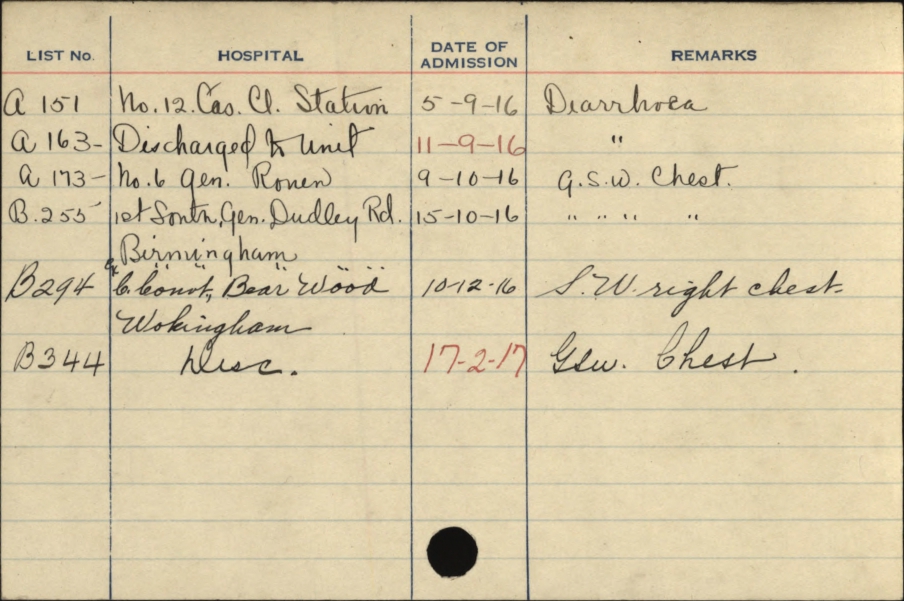 LIST No. HOSPITAL DATE OF ADMISSION REMARKS
A 151 No. 12. Cas. Cl. Station 5-9-16 Diarrhoea
A 163- Discharged to Unit 11-9-16 "
A 173- No. 6 Gen. Rouen 9-10-16 G.S.W. Chest.
B.255 1st South, Gen. Dudley Rd. 15-10-16 " " " "
Birmingham
B294 C. Convt, Bear Wood 10-12-16 S.W. right chest-
Wokingham
B344 Disc. 17-2-17 GSW. Chest.